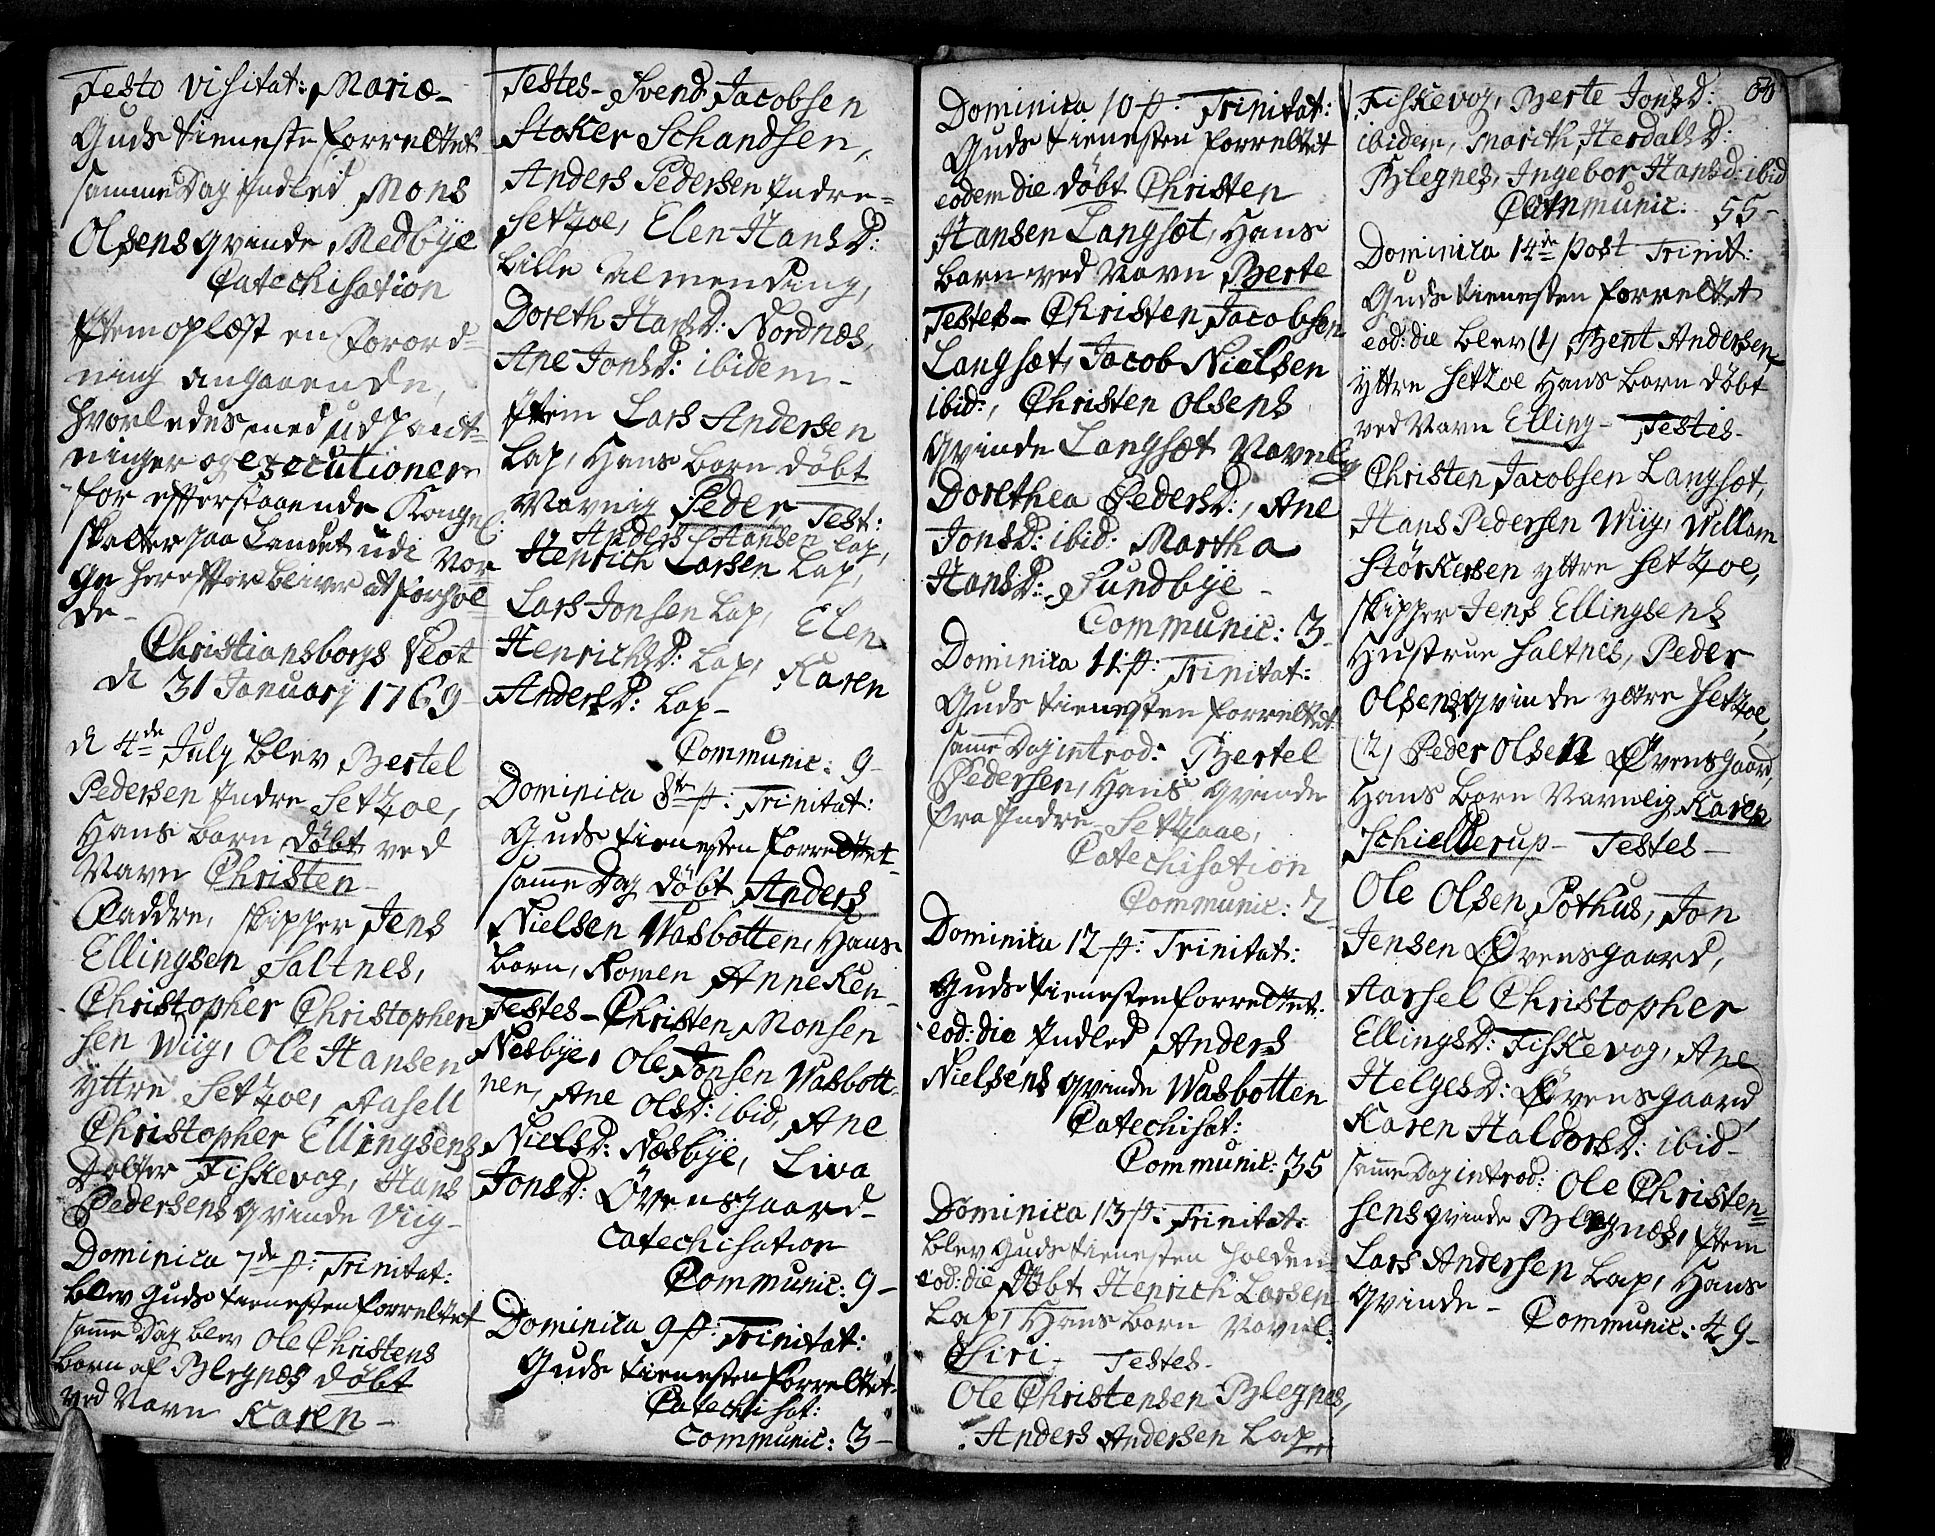 Festo Visitat: Mariæ-
Guds tieneste forrettet
samme Dag Indled Mons
Olsens qvinde Medbÿe
Catechisation
Item oplæst en Forord=
ning angaaende,
hvorledes med udpant=
ninger og executioner
for efterstaaende Kongel:
skatter paa Landet udi Nor
ge herefter bliver at forhol
de-
Christiansborgs Slot
d 31 January 1769-
d 4de July blev Bertel
Pedersen Indre Setzoe,
Hans barn döbt ved
Navn Christen-
Faddre, skipper Jens
Ellingsen Saltnes,
Christopher Christopher
sen Wiig, Ole Hansen
yttre Setzoe, Aasell
Christopher Ellingsens
Dotter Fiskevog, Hans
Pedersens qvinde Viig-
Dominica 7de p: Trinitat:
blev Guds tienesten forrettet
samme Dag blev Ole Christens
barn af Blegnæs döbt
ved Navn Karen-
Testes- Svend Jacobsen
Stoker Schandsen,
Anders Pedersen Indre=
Setzoe, Elen HansD:
Lille Almending,
Doreth HansD: Nordnæs,
Ane JonsD: ibidem-
Item Lars Andersen
Lap, Hans barn döbt
Navnlig Peder Test:
Anders Hansen Lap,
Henrich Larsen Lap,
Lars Jonsen Lap, Elen
HenrichsD: Lap, Karen
AndersD: Lap-
Communic: 9-
Dominica 8tv p: Trinitat:
Guds tienesten forrettet
samme Dag döbt Anders
Nielsen Wasbotten, Hans
barn, Nomen Anne Ken-
Testes- Christen Monsen
Nesbÿe, Ole Jonsen Wasbott=
nen, Ane OlsD: ibid, Ane
NielsD: Næsbÿe, Liva
JonsD: Øvensgaard-
Catechisation
Communic: 9-
Dominica 9 p: Trinitat:
Guds tienesten forrettet.
Catechisat:
Communic: 3-
Dominica 10 p: Trinitat:
Guds tienesten forrettet
eodem die döbt Christen
Hansen Langsæt, Hans
barn ved Navn Berte
Testes- Christen Jacobsen
Langsæt, Jacob Nielsen
ibid:, Christen Olsens
qvinde Langsæt Navnlig
Dorethea PedersD:, Ane
JonsD: ibid: Martha
HansD: Sundbÿe-
Communic: 3-
Dominica 11 p: Trinitat:
Guds tienesten forrettet.
samme Dag introd: Bertel
Pedersen, Hans qvinde
fra Indre Setzoae,
Catechisation
Communic: 2
Dominica 12 p: Trinitat:
Guds tienesten forrettet.
eod: die Indled Anders
Nielsens qvinde Wasbotten
Catechisat:
Communic: 35
Dominica 13 p: Trinitat:
blev Guds tienesten holden
eod: die döbt Henrich Larsen
Lap, Hans barn Navnl:
Siri. Testes-
Ole Christensen Blegnes,
Anders Andersen Lap
Fiskevog, Berte JonsD:
ibidem, Marith HerdalsD:
Blegnes, Ingebor HansD: ibid
Communic: 55-
Dominica 14de post Trinit:
Guds tienesten forrettet
eod: die blev (1) Bent Andersen
yttre Setzoe Hans barn döbt
ved Navn Elling- Testes-
Christen Jacobsen Langsæt,
Hans Pedersen Wiig, Willam
Störkersen yttre Setzoe,
skipper Jens Ellingsens
Hustrue Saltnes, Peder
Olsens qvinde yttre Setzoe,
(2) Peder Olsen Øvensgaard,
Hans barn Navnlig Karen
Schielderup- Testes-
Ole Olsen Pothus, Jon
Jensen Øvensgaard,
Aassel Christopher
EllingsD: Fiskevog, Ane
HelgesD: Øvensgaard,
Karen HaldorsD: ibid-
samme Dag introd: Ole Christen=
sens qvinde Blegnæs, Item
Lars Andersen Lap, Hans
qvinde-
Communic: 49-